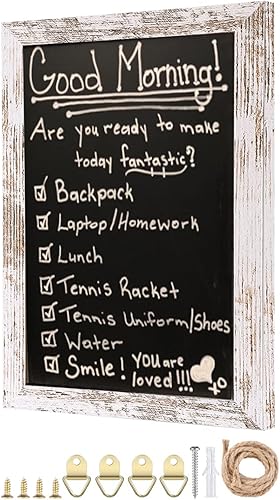 Good Morning!
Are you ready to make
today fantastic?
Backpack
Laptop/Homework
Lunch
Tennis Racket
Tennis Uniform/Shoes
Water
Smile! You are
loved!!!